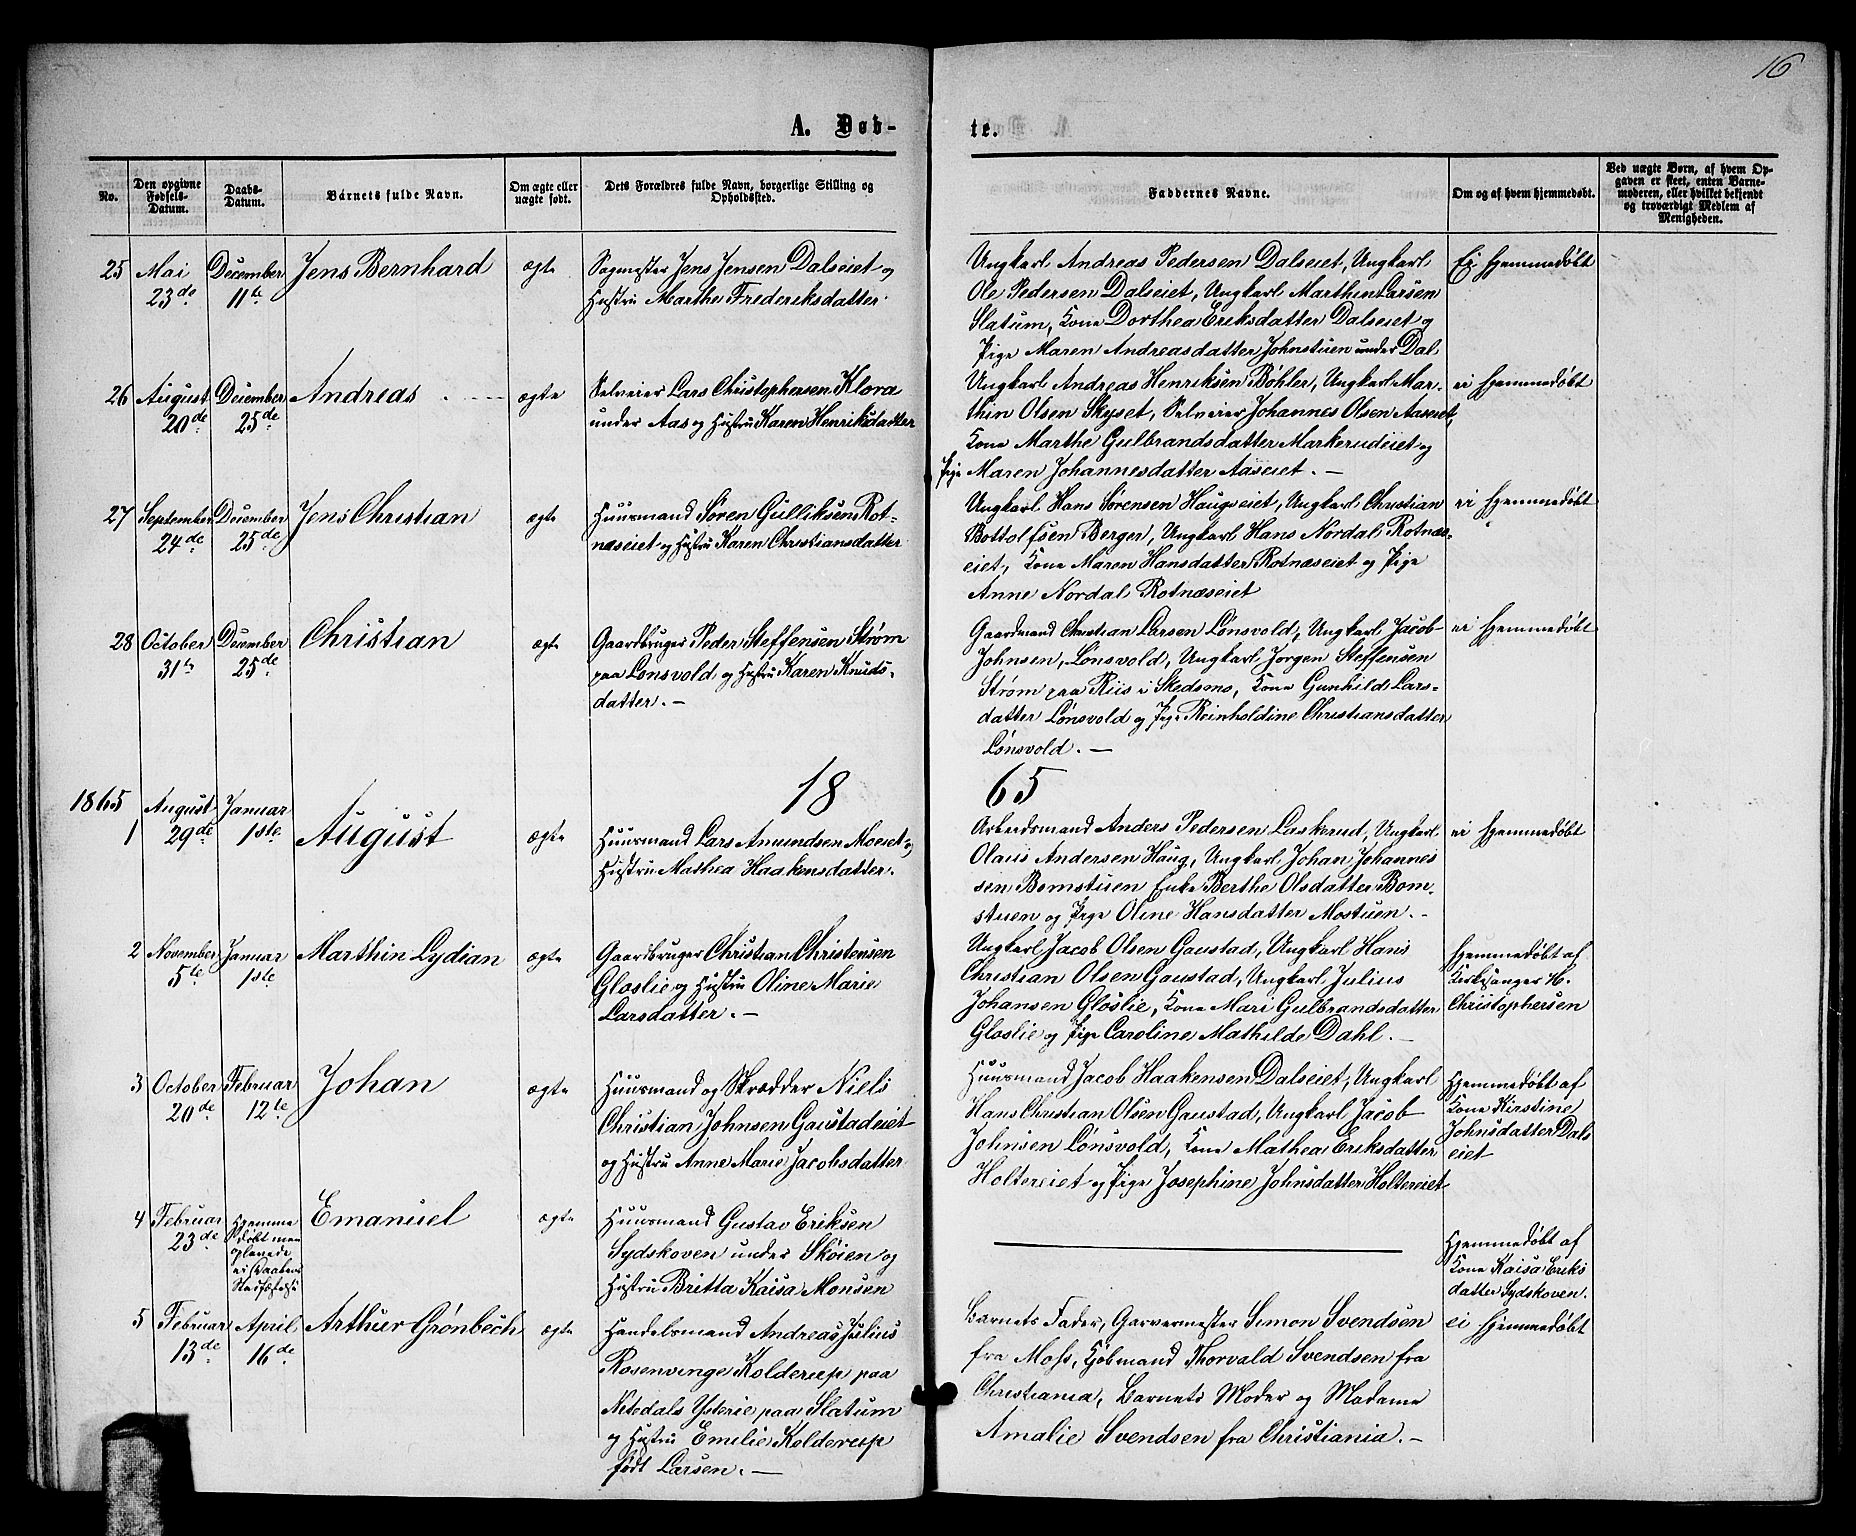 16
A. Døb-
te.
No.
Den opgivne
Fødsels-
Datum.
Daabs-
Datum.
Barnets fulde Navn.
Om ægte eller
uægte født.
Dets Forældres fulde Navn, borgerlige Stilling og
Opholdssted.
Faddernes Navne.
Om og af hvem hjemmedøbt.
Ved uægte Børn, af hvem Op-
gaven er skeet, enten Barne-
moderen, eller hvilket bekjendt
og troværdigt Medlem af
Menigheden.
25
Mai
23de
December
11te
Jens Bernhard
ægte
Sagmester Jens Jensen Dalseiet og
Hustru Marthe Frederiksdatter
Ungkarl Andreas Pedersen Dalseiet, Ungkarl
Ole Pedersen Dalseiet, Ungkarl Marthin Larsen
Slatum, Kone Dorthea Eriksdatter Dalseiet og
Pige Maren Andreasdatter Johnstuen under Dal
Ei hjemmedøbt
26
August
20de
December
25de
Andreas
ægte
Selveier Lars Christophersen Klora
under Aas og Hustru Karen Henriksdatter
Ungkarl Andreas Henriksen Bøhler, Ungkarl Mar-
thin Olsen Skyset, Selveier Johannes Olsen Aaseiet,
Kone Marthe Gulbrandsdatter Markerudeiet og
Pige Maren Johannesdatter Aaseiet. —
ei hjemmedøbt
27
September
24de
December
25de
Jens Christian
ægte
Huusmand Søren Gulliksen Rot-
næseiet og Hustru Karen Christiansdatter
Ungkarl Hans Sørensen Haugseiet, Ungkarl Christian
Bottolfsen Bergen, Ungkarl Hans Nordal Rotnæs-
eiet, Kone Maren Hansdatter Rotnæseiet og Pige
Anne Nordal Rotnæseiet
ei hjemmedøbt
28
October
31te
December
25de
Christian
ægte
Gaardbruger Peder Steffensen Strøm
paa Lønsvold og Hustru Karen Knuds-
datter. —
Gaardmand Christian Larsen Lønsvold, Ungkarl Jacob
Johnsen, Lønsvold, Ungkarl Jørgen Steffensen
Strøm paa Riis i Skedsmo, Kone Gunhild Lars-
datter Lønsvold og Pige Reinholdine Christiansdatter
Lønsvold. —
ei hjemmedøbt
18
65
1865
1
August
29de
Januar
1ste
August
ægte
Huusmand Lars Amundsen Moeiet og
Hustru Mathea Haakensdatter.
Arbeidsmand Anders Pedersen Laskerud, Ungkarl
Olaus Andersen Haug, Ungkarl Johan Johannes
sen Bomstuen Enke Berthe Olsdatter Bom-
stuen og Pige Oline Hansdatter Mostuen. -
ei hjemmedøbt
2
November
5te
Januar
1ste
Marthin Lydian
ægte
Gaardbruger Christian Christensen
Gløslie og Hustru Oline Marie
Larsdatter. —
Ungkarl Jacob Olsen Gaustad, Ungkarl Hans
Christian Olsen Gaustad, Ungkarl Julius
Johansen Gløslie, Kone Mari Gulbrandsdatter
Gløslie og Pige Caroline Mathilde Dahl. —
Hjemmedøbt af
Kirkesanger H.
Christophersen
3
October
20de
Februar
12te
Johan
ægte
Huusmand og Skrædder Niels
Christian Johnsen Gaustadeiet
og Hustru Anne Marie Jacobsdatter
Huusmand Jacob Haakensen Dalseiet, Ungkarl
Hans Christian Olsen Gaustad, Ungkarl Jacob
Johnsen Lønsvold, Kone Mathea Eriksdatter
Holtereiet og Pige Josephine Johnsdatter Holtereiet
Hjemmedøbt af
Kone Kirstine
Johnsdatter Dals
eiet
4
Februar
23de
Hjemme
døbt men
oplevede
ei Daabens
Stadfæstelse
Emanuel
ægte
Huusmand Gustav Eriksen
Sydskoven under Skøien og
Hustru Britta Kaisa Monsen
Hjemmedøbt af
Kone Kaisa Eriks
datter Sydskoven.
5
Februar
13de
April
16de
Arthur Grønbech
ægte
Handelsmand Andreas Julius
Rosenvinge Kolderup paa
Nitedals Ysterie paa Slatum
og Hustru Emelie Kolderup
født Larsen. —
Barnets Fader, Garvermester Simon Svendsen
fra Moss, Kjøbmand Thorvald Svendsen fra
Christiania, Barnets Moder og Madame
Amalie Svendsen fra Christiania. —
ei hjemmedøbt